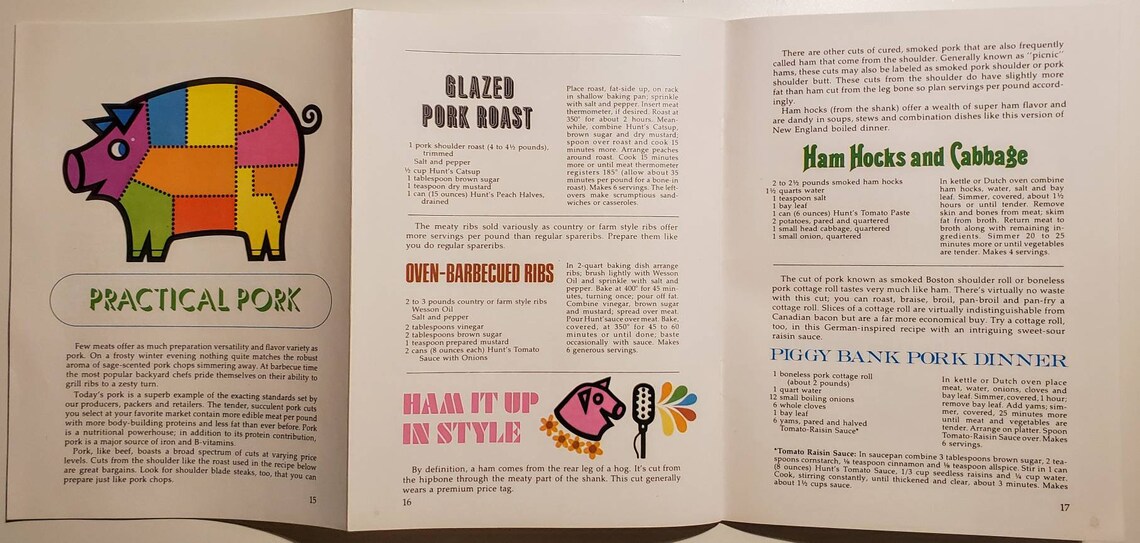 PRACTICAL PORK
Few meats offer as much preparation versatility and flavor variety as
pork. On a frosty winter evening nothing quite matches the robust
aroma of sage-scented pork chops simmering away. At barbecue time
the most popular backyard chefs pride themselves on their ability to
grill ribs to a zesty turn.
Today's pork is a superb example of the exacting standards set by
our producers, packers and retailers. The tender, succulent pork cuts
you select at your favorite market contain more edible meat per pound
with more body-building proteins and less fat than ever before. Pork
is a nutritional powerhouse; in addition to its protein contribution,
pork is a major source of iron and B-vitamins.
Pork, like beef, boasts a broad spectrum of cuts at varying price
levels. Cuts from the shoulder like the roast used in the recipe below
are great bargains. Look for shoulder blade steaks, too, that you can
prepare just like pork chops.
15
GLAZED
PORK ROAST
1 pork shoulder roast (4 to 4½ pounds),
trimmed
Salt and pepper
½ cup Hunt's Catsup
1 tablespoon brown sugar
1 teaspoon dry mustard
1 can (15 ounces) Hunt's Peach Halves,
drained
Place roast, fat-side up, on rack
in shallow baking pan; sprinkle
with salt and pepper. Insert meat
thermometer, if desired. Roast at
350° for about 2 hours. Mean-
while, combine Hunt's Catsup,
brown sugar and dry mustard;
spoon over roast and cook 15
minutes more. Arrange peaches
around roast. Cook 15 minutes
more or until meat thermometer
registers 185° (allow about 35
minutes per pound for a bone-in
roast). Makes 6 servings. The left-
overs make scrumptious sand-
wiches or casseroles.
The meaty ribs sold variously as country or farm style ribs offer
more servings per pound than regular spareribs. Prepare them like
you do regular spareribs.
OVEN-BARBECUED RIBS
2 to 3 pounds country or farm style ribs
Wesson Oil
Salt and pepper
2 tablespoons vinegar
2 tablespoons brown sugar
1 teaspoon prepared mustard
2 cans (8 ounces each) Hunt's Tomato
Sauce with Onions
In 2-quart baking dish arrange
ribs; brush lightly with Wesson
Oil and sprinkle with salt and
pepper. Bake at 400° for 45 min-
utes, turning once; pour off fat.
Combine vinegar, brown sugar
and mustard; spread over meat.
Pour Hunt' sauce over meat. Bake,
covered, at 350° for 45 to 60
minutes or until done; baste
occasionally with sauce. Makes
6 generous servings.
HAM IT UP
IN STYLE
By definition, a ham comes from the rear leg of a hog. It's cut from
the hipbone through the meaty part of the shank. This cut generally
wears a premium price tag.
16
There are other cuts of cured, smoked pork that are also frequently
called ham that come from the shoulder. Generally known as "picnic"
hams, these cuts may also be labeled as smoked pork shoulder or pork
shoulder butt. These cuts from the shoulder do have slightly more
fat than ham cut from the leg bone so plan servings per pound accord-
ingly.
Ham hocks (from the shank) offer a wealth of super ham flavor and
are dandy in soups, stews and combination dishes like this version of
New England boiled dinner.
Ham Hocks and Cabbage
2 to 2½ pounds smoked ham hocks
1½ quarts water
1 teaspoon salt
1 bay leaf
1 can (6 ounces) Hunt's Tomato Paste
2 potatoes, pared and quartered
1 small head cabbage, quartered
1 small onion, quartered
In kettle or Dutch oven combine
ham hocks, water, salt and bay
leaf. Simmer, covered, about 1½
hours or until tender. Remove
skin and bones from meat; skim
fat from broth. Return meat to
broth along with remaining in-
gredients. Simmer 20 to 25
minutes more or until vegetables
are tender. Makes 4 servings.
The cut of pork known as smoked Boston shoulder roll or boneless
pork cottage roll tastes very much like ham. There's virtually no waste
with this cut; you can roast, braise, broil, pan-broil and pan-fry a
cottage roll. Slices of cottage roll are virtually indistinguishable from
Canadian bacon but are a far more economical buy. Try a cottage roll,
too, in this German-inspired recipe with an intriguing sweet-sour
raisin sauce.
PIGGY BANK PORK DINNER
1 boneless pork cottage roll
(about 2 pounds)
1 quart water
12 small boiling onions
6 whole cloves
1 bay leaf
6 yams, pared and halved
Tomato-Raisin Sauce*
In kettle or Dutch oven place
meat, water, onions, cloves and
bay leaf. Simmer, covered, 1 hour;
remove bay leaf. Add yams; sim-
mer, covered, 25 minutes more
until meat and vegetables are
tender. Arrange on platter. Spoon
Tomato-Raisin Sauce over. Makes
6 servings.
*Tomato Raisin Sauce: In saucepan combine 3 tablespoons brown sugar, 2 tea-
spoons cornstarch, ⅛ teaspoon cinnamon and ⅛ teaspoon allspice. Stir in 1 can
(8 ounces) Hunt's Tomato Sauce, 1/3 cup seedless raisins and ¼ cup water.
Cook, stirring constantly, until thickened and clear, about 3 minutes. Makes
about 1½ cups sauce.
17